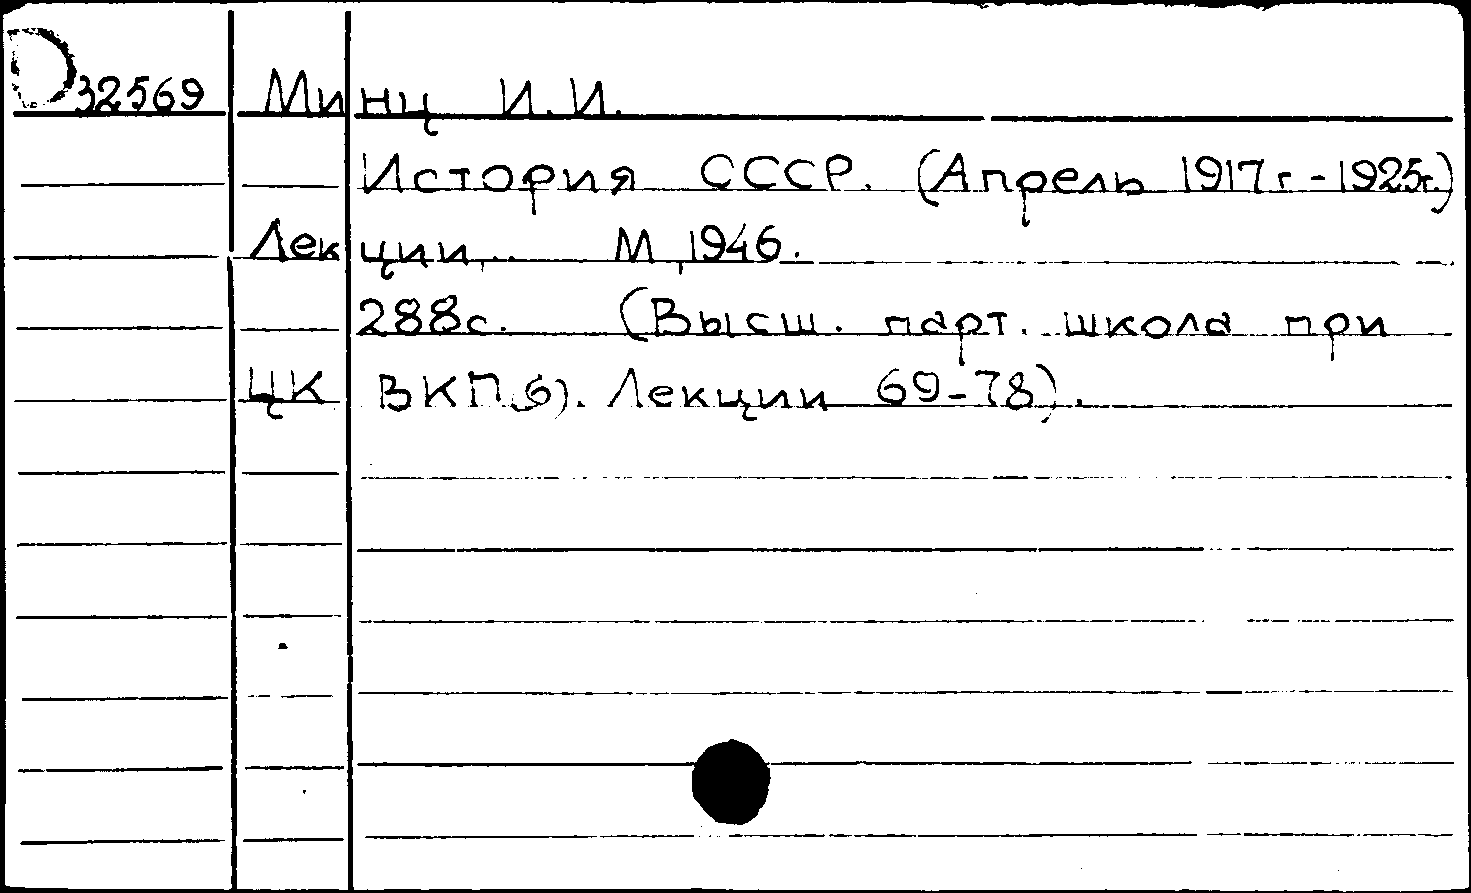 D 32569 Минц И.И.
История СССР. (Апрель 1917г. - 1925г.)
Лекции... М., 1946.
288с. (Высш. парт. школа при
ЦК ВКП(б). Лекции 69-78).